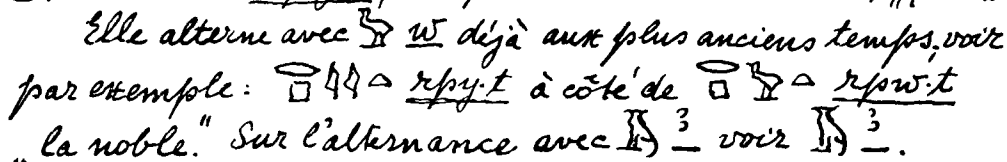 Elle alterne avec 𓅱 w déjà aux plus anciens temps, voir
par exemple: 𓂋𓊪𓇌𓏏 rpy·t à côté de 𓂋𓊪𓅱𓏏 rpw·t
„la noble." Sur l'alternance avec 𓄿 ꜣ voir 𓄿 ꜣ.